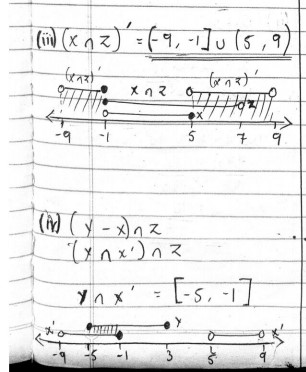 (iii) (x ∩ z)' = [-9, -1] ∪ (5, 9)
(x ∩ z)' x ∩ z (x ∩ z)'
z
x
-9 -1 5 7 9
(iv) (y - x) ∩ z
(y ∩ x') ∩ z
y ∩ x' = [-5, -1]
x' y x'
-9 -5 -1 3 5 9